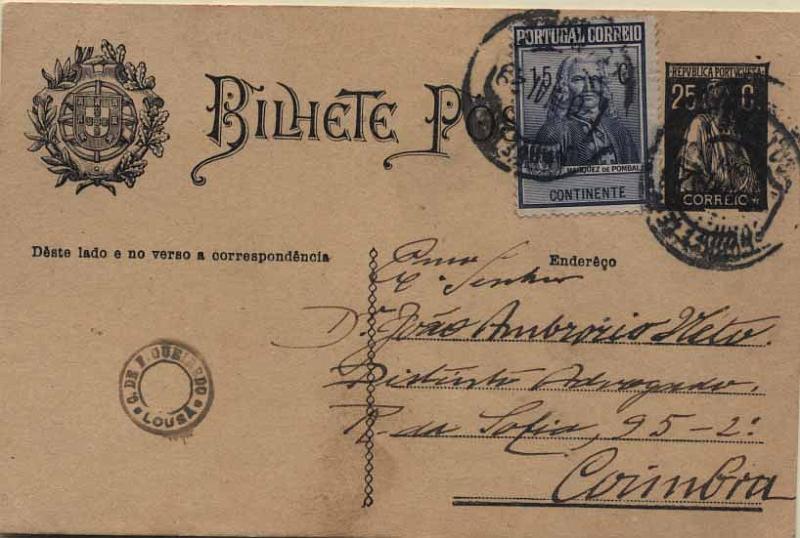 BILHETE POS
PORTUGAL CORREIO
15 C
MARQUEZ DE POMBAL
CONTINENTE
REPUBLICA PORTUGUESA
25 C
CORREIO
Dêste lado e no verso a correspondência
Endereço
Exmo
Senhor
Dr. João Ambrósio Neto.
Distinto Advogado.
R. da Sofia, 95-2º
Coimbra
C. DE FIGUEIREDO
LOUSÃ